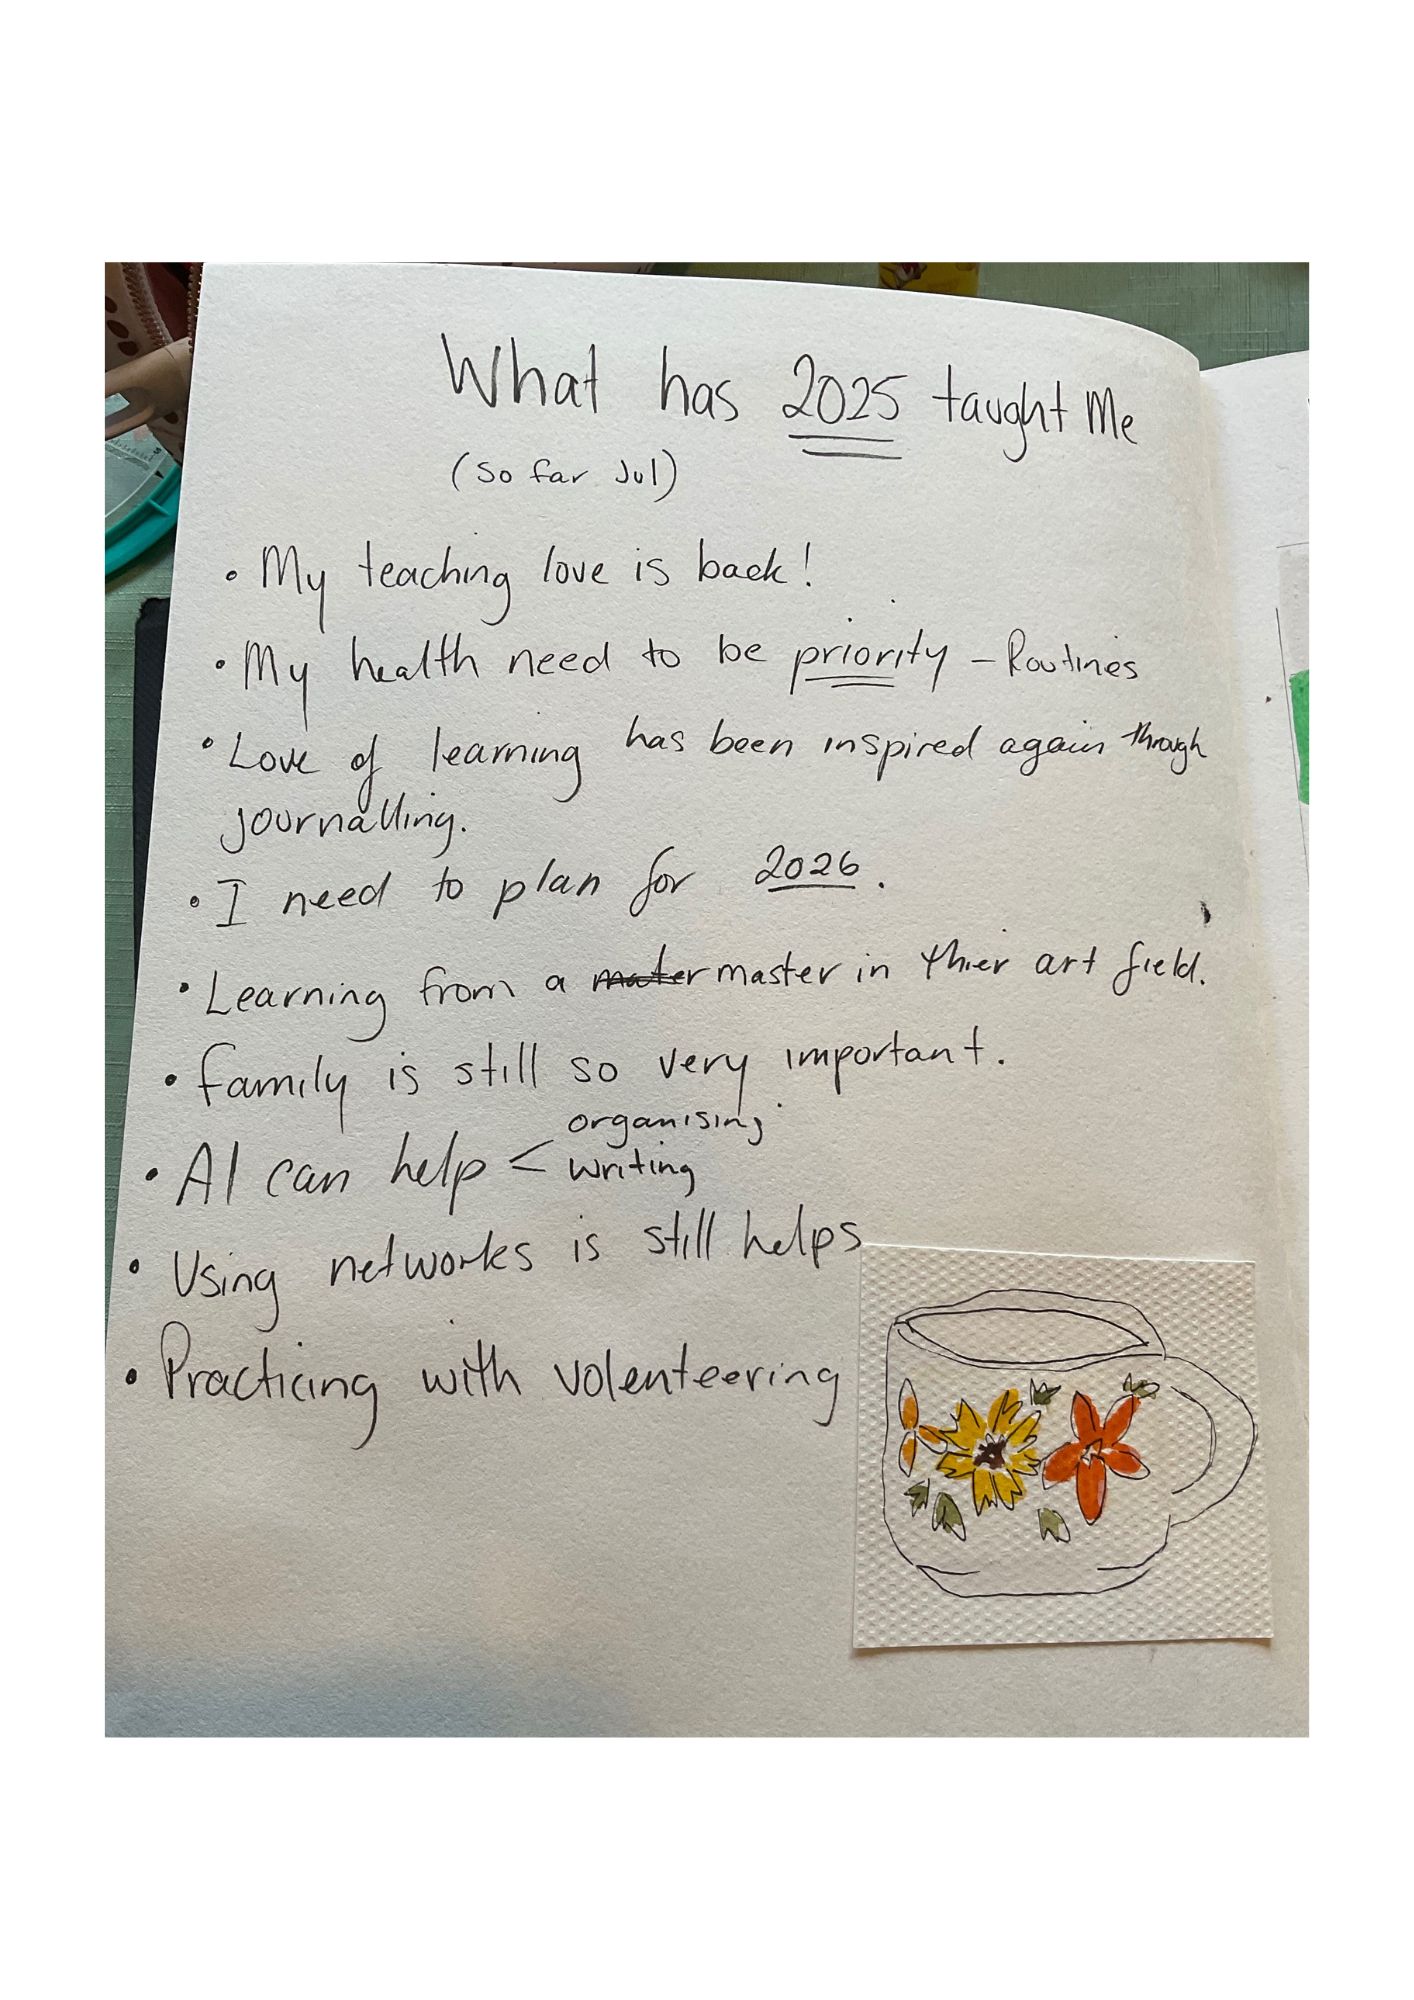 What has 2025 taught Me
(So far Jul)
• My teaching love is back!
• My health need to be priority – Routines
• Love of learning has been inspired again through
journalling.
• I need to plan for 2026.
• Learning from a mater master in thier art field.
• Family is still so very important.
• AI can help < organising
writing
• Using networks is still helps
• Practicing with volenteering